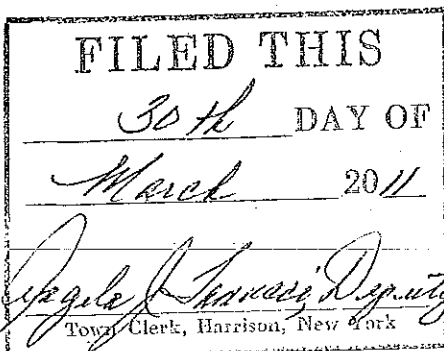 FILED THIS
30th DAY OF
March 2011
Angela J Deputy
Town Clerk, Harrison, New York